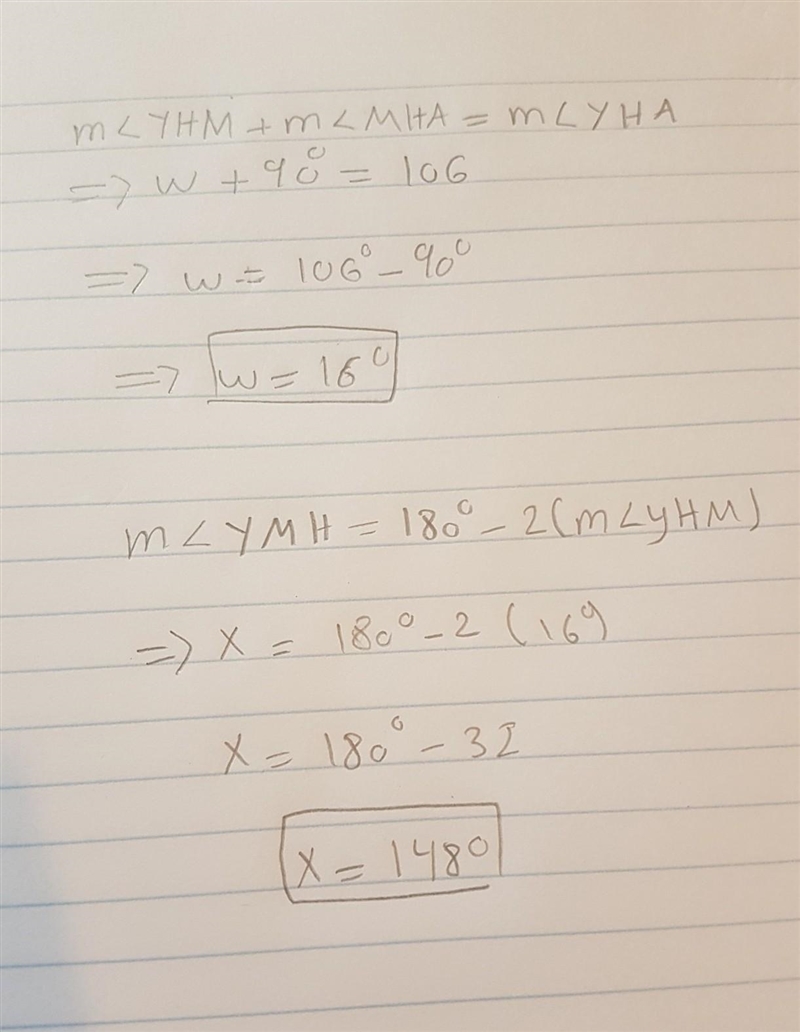 m<YHM + m<MHA = m<YHA
=> w + 90° = 106
=> w = 106° - 90°
=> w = 16°
m<YMH = 180° - 2(m<YHM)
=> X = 180° - 2 (16°)
X = 180° - 32
X = 148°